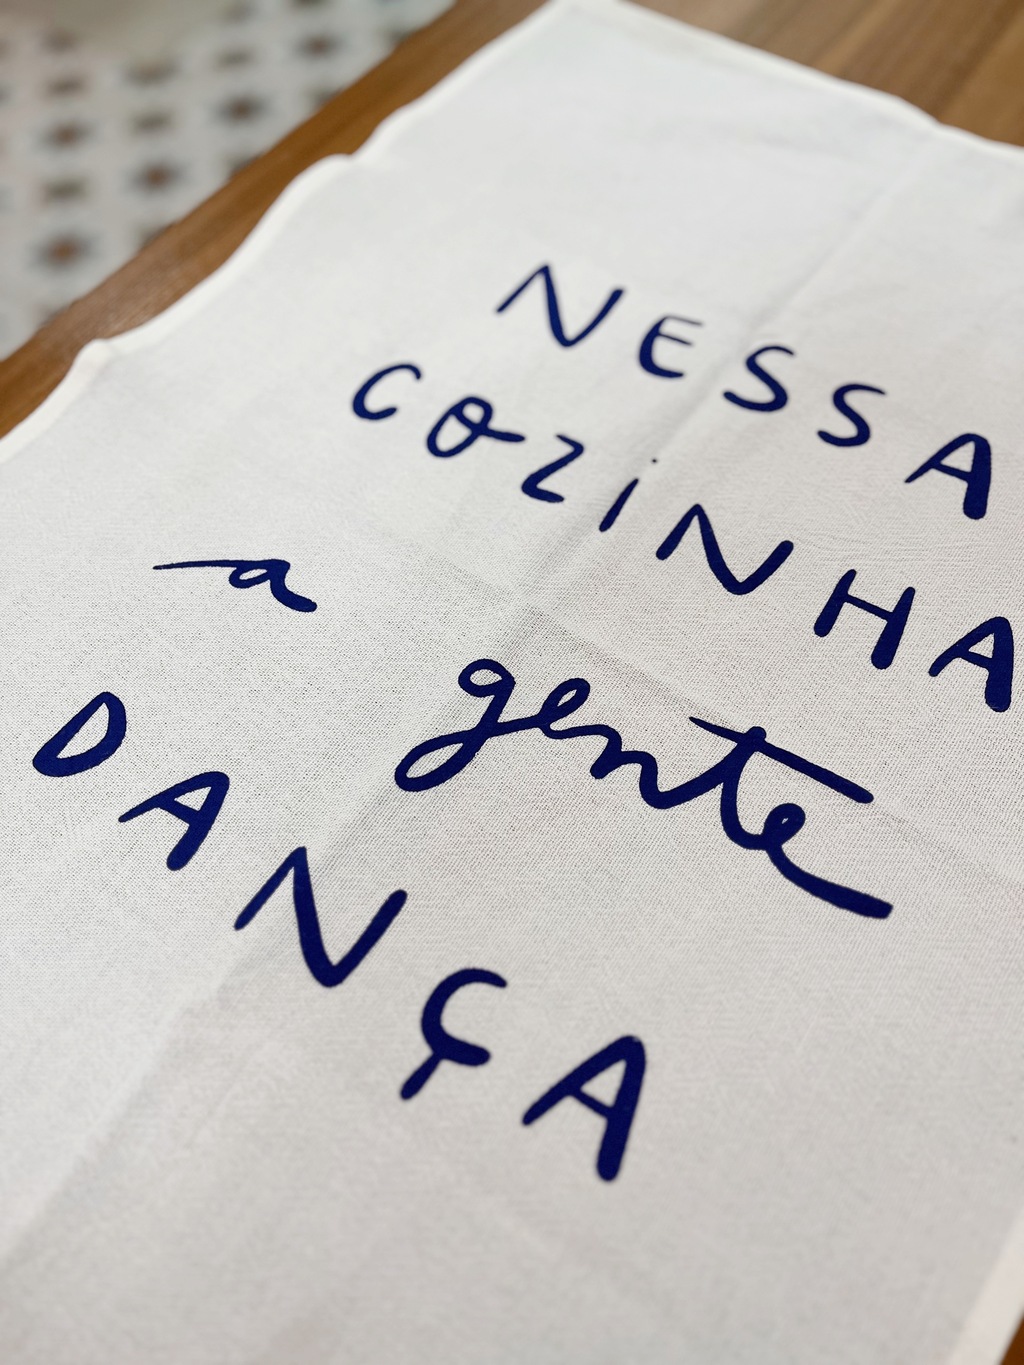 NESSA
COZiNHA
a gente
DANÇA